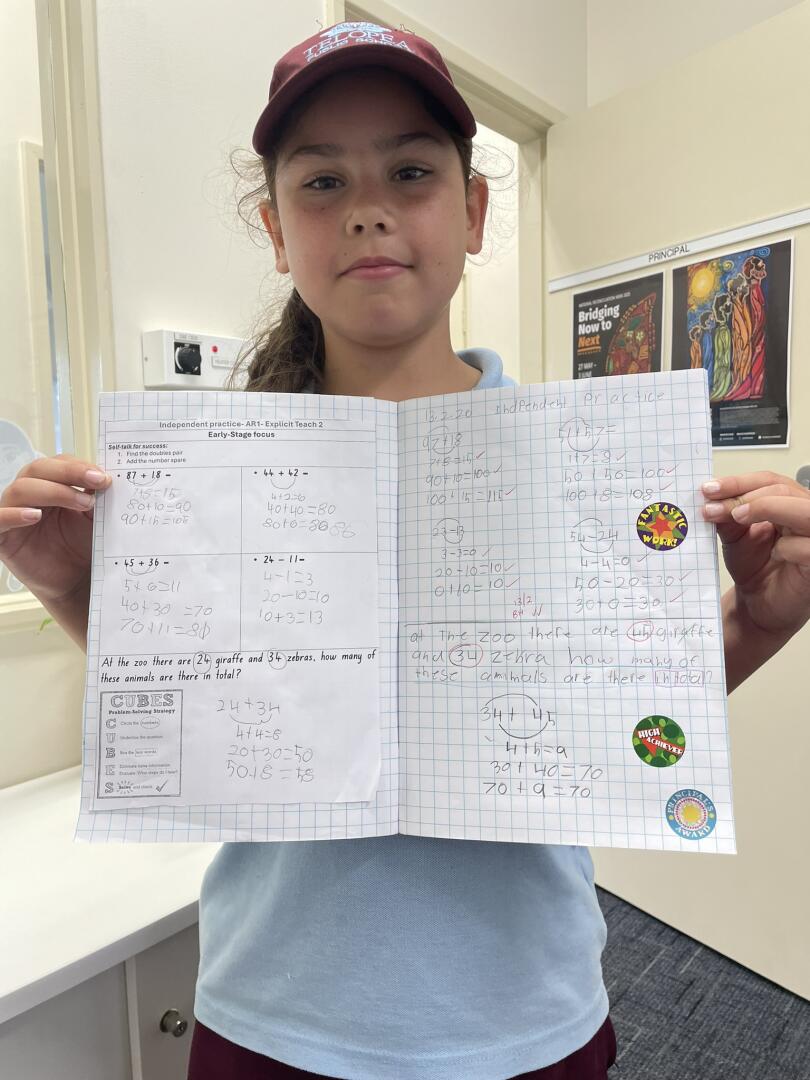 TELOPEA
PUBLIC SCHOOL
PRINCIPAL
NATIONAL RECONCILIATION WEEK 2025
Bridging
Now to
Next
27 MAY -
3 JUNE
Independent practice- AR1- Explicit Teach 2
Early-Stage focus
Self-talk for success:
1. Find the doubles pair
2. Add the number spare
• 87 + 18 -
7+8=15
80+10=90
90+15=105
• 44 + 42 -
4+2=6
40+40=80
80+6=86 86
• 45 + 36 -
5+6=11
40+30 =70
70+11=81
• 24 - 11-
4-1=3
20-10=10
10+3=13
At the zoo there are 24 giraffe and 34 zebras, how many of
these animals are there in total?
CUBES
Problem-Solving Strategy
C Circle the numbers.
U Underline the question.
B Box the key words.
E Eliminate extra information.
Evaluate: What steps do I take?
S Solve and check. ✓
24+34
4+4=8
20+30=50
50+8=58
Indpendent Practice
97+18
7+8=15 ✓
90+10=100 ✓
100+15=115 ✓
1+7=8 ✓
50+50=100 ✓
100+8=108 ✓
23-13
3-3=0 ✓
20-10=10 ✓
0+10=10 ✓
54-24
4-4=0 ✓
50-20=30 ✓
30+0=30 ✓
FANTASTIC
WORK!
at the zoo there are 45 giraffe
and 34 zebra how many of
these amimals are there in total?
34+ 45
4+5=9
30+40=70
70+9=70
HIGH
ACHIEVER
PRINCIPAL'S
AWARD